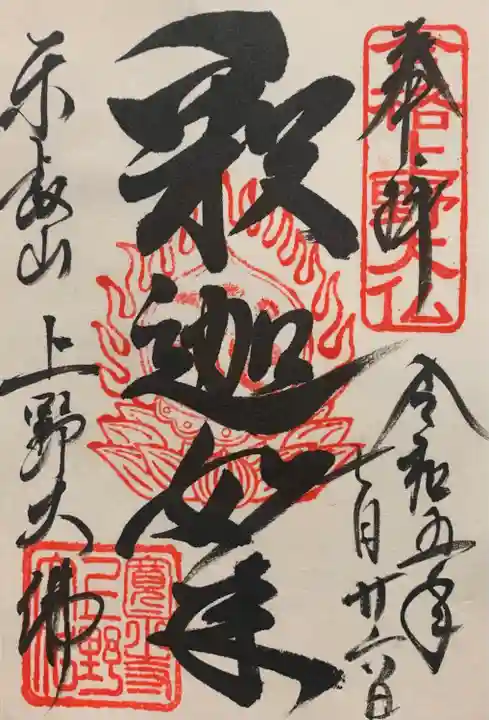 奉拝
合格上野大仏
令和五年
七月廿六日
釈迦如来
東叡山 上野大佛
寛永寺